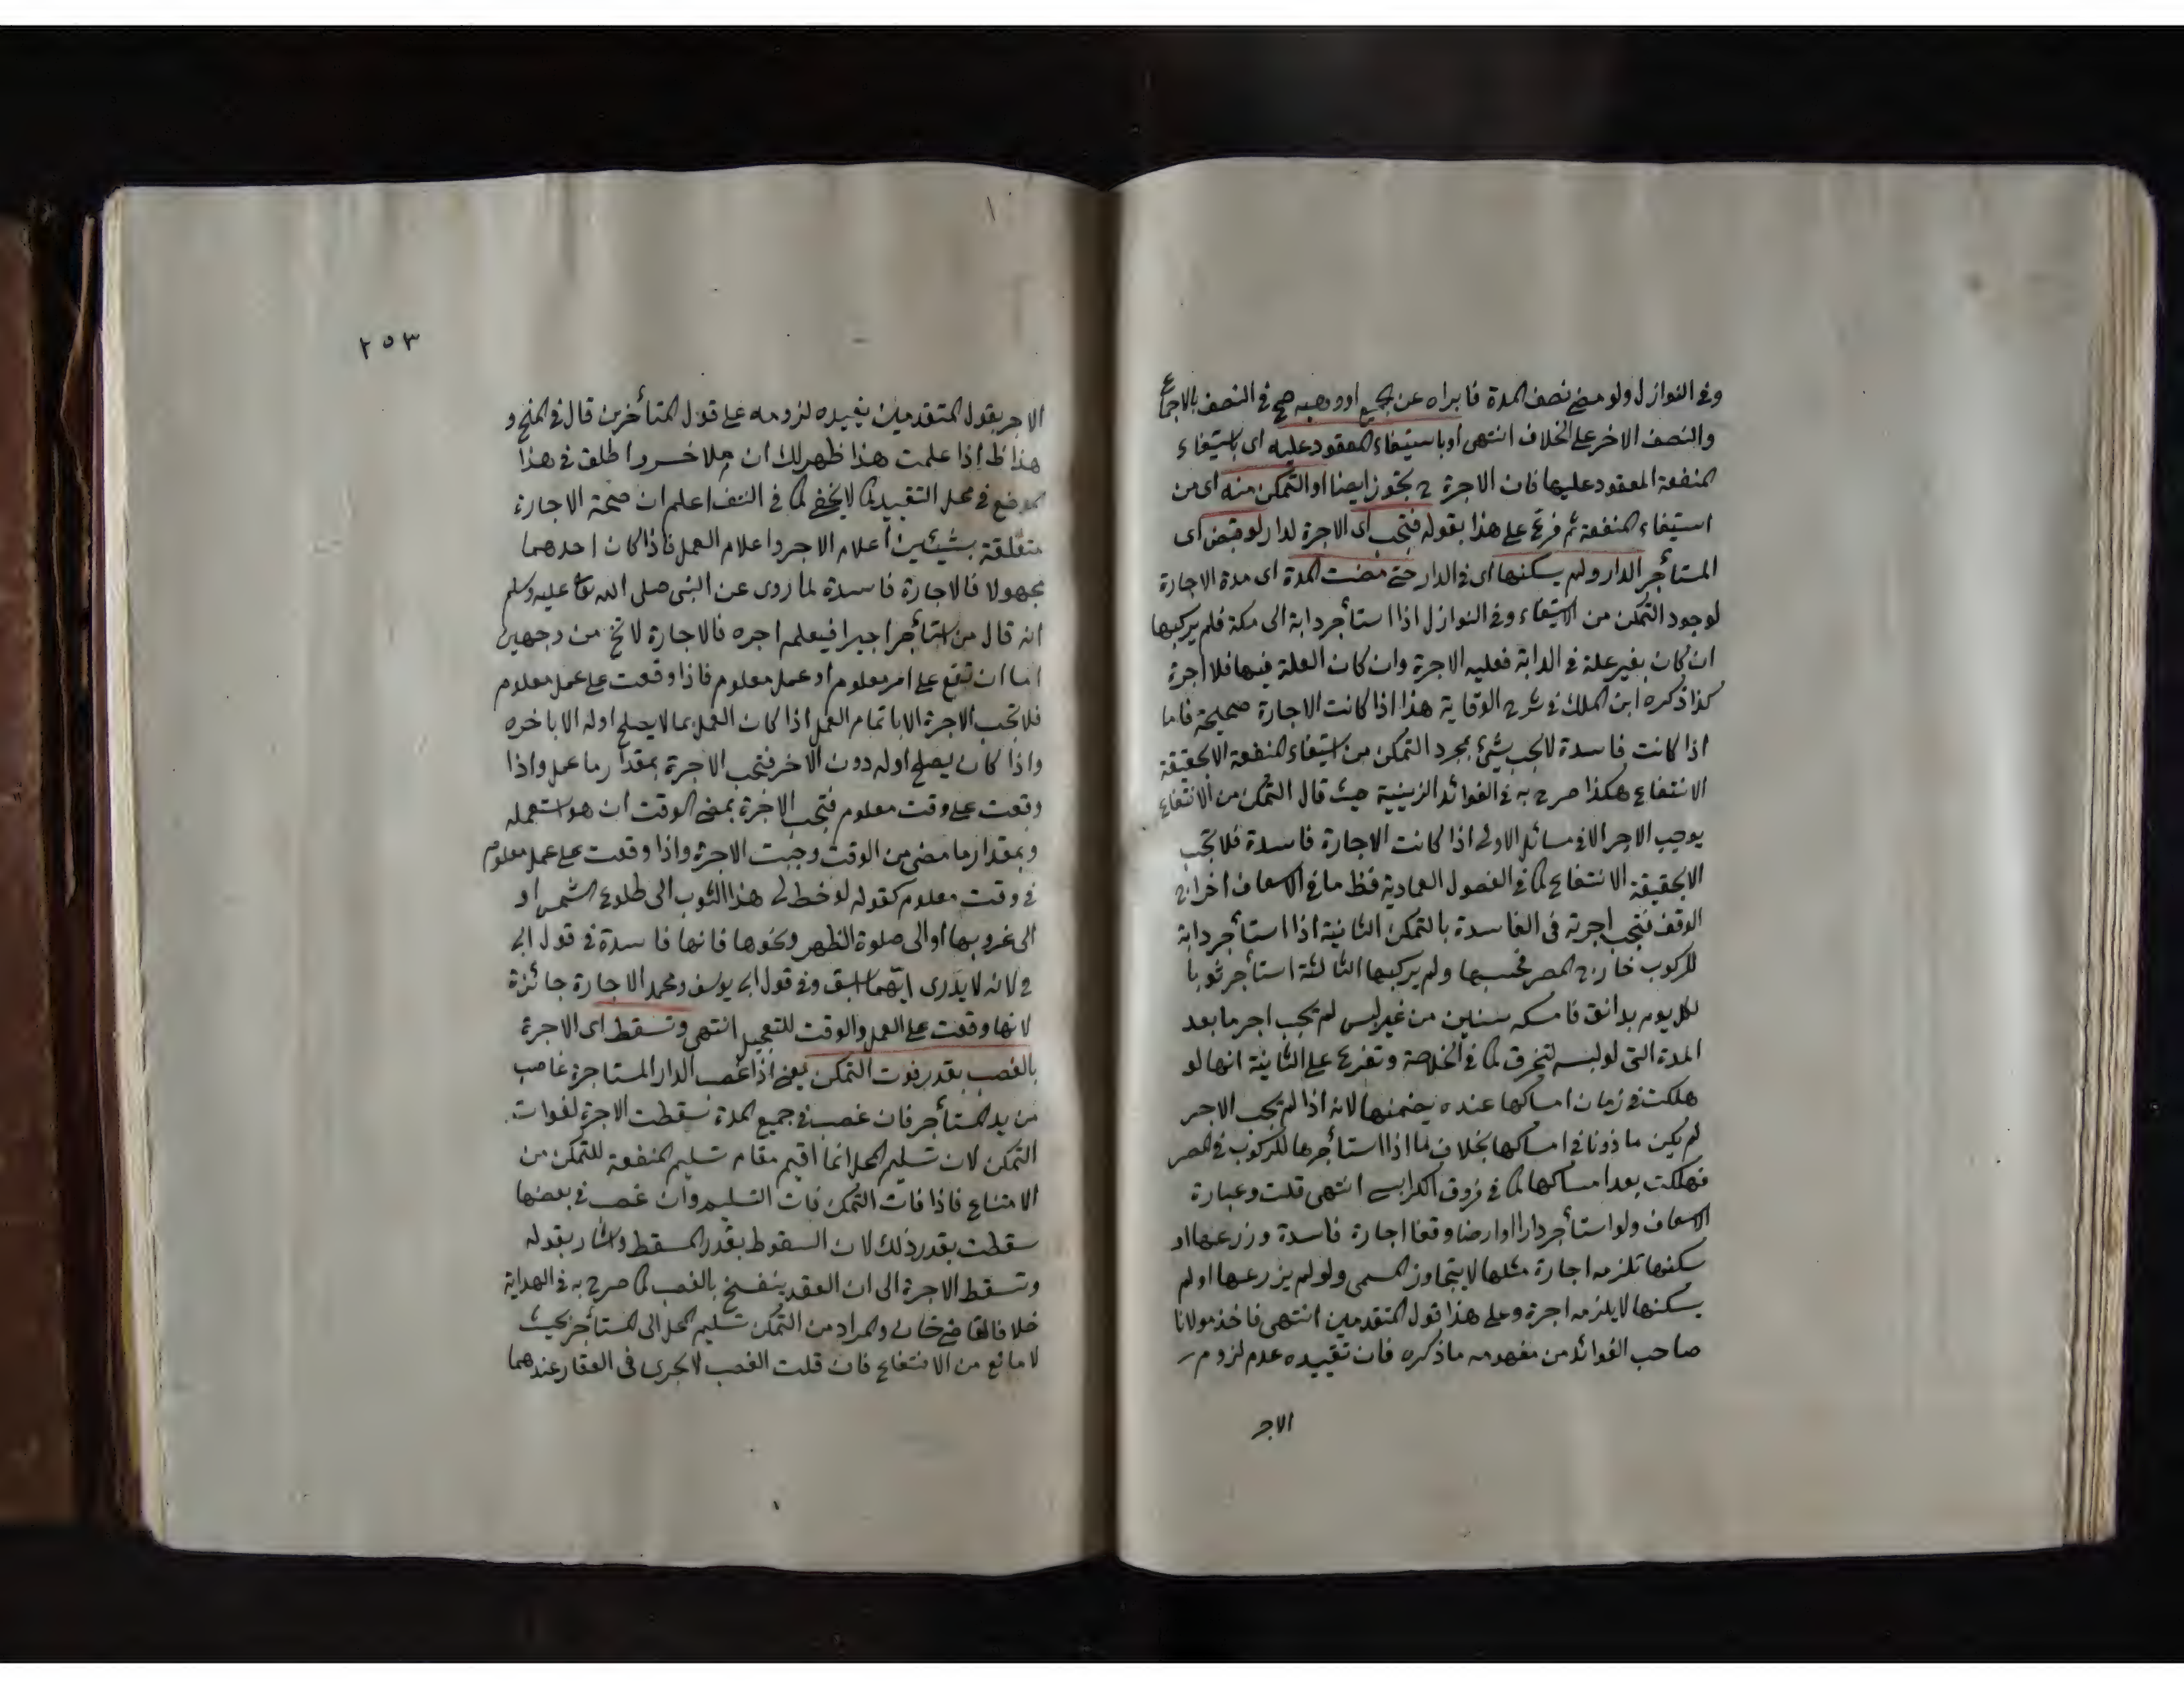 وفى النوازل ولو مضى نصف المدة فابراه عن الجميع او وهبه صح فى النصف بالاجماع
والنصف الاخر على الخلاف انتهى او باستيفاء المعقود عليه اى باستيفاء
المنفعة المعقود عليها فان الاجرة ح بحوز ايضا او التمكن منه اى من
استيفاء المنفعة ثم فرع على هذا بقوله فتجب اى الاجرة لدار لو قبض اى
المستأجر الدار ولم يسكنها اى فى الدار حتى مضت المدة اى مدة الاجارة
لوجود التمكن من الاستيفاء وفى النوازل اذا استأجر دابة الى مكة فلم يركبها
ان كان بغير علة فى الدابة فعليه الاجرة وان كان العلة فيها فلا اجرة
كذا ذكره ابن الملك فى شرح الوقاية هذا اذا كانت الاجارة صحيحة فاما
اذا كانت فاسدة لا يجب شئ بمجرد التمكن من استيفاء المنفعة الا بحقيقة
الانتفاع هكذا صرح به فى الفوائد الزينية حيث قال التمكن من الانتفاع
يوجب الاجر الا فى مسائل الاولى اذا كانت الاجارة فاسدة فلا تجب
الا بحقيقة الانتفاع كما فى الفصول العمادية فظ ما فى الاسعاف اخراج
الوقف فتجب اجرته فى الفاسدة بالتمكن الثانية اذا استأجر دابة
للركوب خارج المصر فحبسها ولم يركبها الثالثة استأجر ثوبا
لكل يوم بدانق فامسكه سنين من غير لبس لم يجب اجر ما بعد
المدة التى لو لبسه لتخرق كما فى الخلاصة وتفرع على الثانية انها لو
هلكت فى زمان امساكها عنده يضمنها لانه اذا لم يجب الاجر
لم يكن ماذونا فى امساكها بخلاف ما اذا استأجرها للركوب فى المصر
فهلكت بعد امساكها كما فى فروق الكرابيسى انتهى قلت وعبارة
الاسعاف ولو استأجر دارا او ارضا وقفا اجارة فاسدة وزرعها او
سكنها تلزمه اجارة مثلها لا يتجاوز المسمى ولو لم يزرعها او لم
يسكنها لا يلزمه اجرة وعلى هذا قول المتقدمين انتهى فاخذ مولانا
صاحب الفوائد من مفهومه ما ذكره فان تقييده عدم لزوم
الاجر
٢٥٣
الاجر بقول المتقدمين يفيده لزومه على قول المتأخرين قال فى المنح و
هذا ظ اذا علمت هذا ظهر لك ان ملا خسرو اطلق فى هذا
الموضع فى محل التقييد كما لا يخفى كما فى النتف اعلم ان صحة الاجارة
متعلقة بشيئين اعلام الاجر واعلام العمل فاذا كان احدهما
مجهولا فالاجارة فاسدة لما روى عن النبى صلى الله تعا عليه وسلم
انه قال من استأجر اجيرا فيعلمه اجره فالاجارة لا تخ من وجهين
اما ان تقع على امر معلوم او عمل معلوم فاذا وقعت على عمل معلوم
فلا تجب الاجرة الا باتمام العمل اذا كان العمل بما لا يصلح اوله الا باخره
واذا كان يصلح اوله دون الاخر فتجب الاجرة بمقدار ما عمل واذا
وقعت على وقت معلوم فتجب الاجرة بمضى الوقت ان هو استعمله
وبمقدار ما مضى من الوقت وجبت الاجرة واذا وقعت على عمل معلوم
فى وقت معلوم كقوله لو خط لى هذا الثوب الى طلوع الشمس او
الى غروبها او الى صلوة الظهر ونحوها فانها فاسدة فى قول ابى
ح لانه لا يدرى ايهما اسبق وفى قول ابى يوسف ومحمد الاجارة جائزة
لانها وقعت على العمل والوقت للتعجيل انتهى وتسقط اى الاجرة
بالغصب بقدر فوت التمكن يعنى اذا غصب الدار المستاجرة غاصب
من يد المستأجر فان غصب فى جميع المدة سقطت الاجرة لفوات
التمكن لان تسليم المحل انما اقيم مقام تسليم المنفعة للتمكن من
الامتناع فاذا فات التمكن فات التسليم وان غصب فى بعضها
سقطت بقدر ذلك لان السقوط بقدر المسقط واشار بقوله
وتسقط الاجرة الى ان العقد ينفسخ بالغصب كما صرح به فى الهداية
خلافا لقاضى خان والمراد من التمكن تسليم المحل الى المستأجر بحيث
لا مانع من الانتفاع فان قلت الغصب لا يجرى فى العقار عندهما